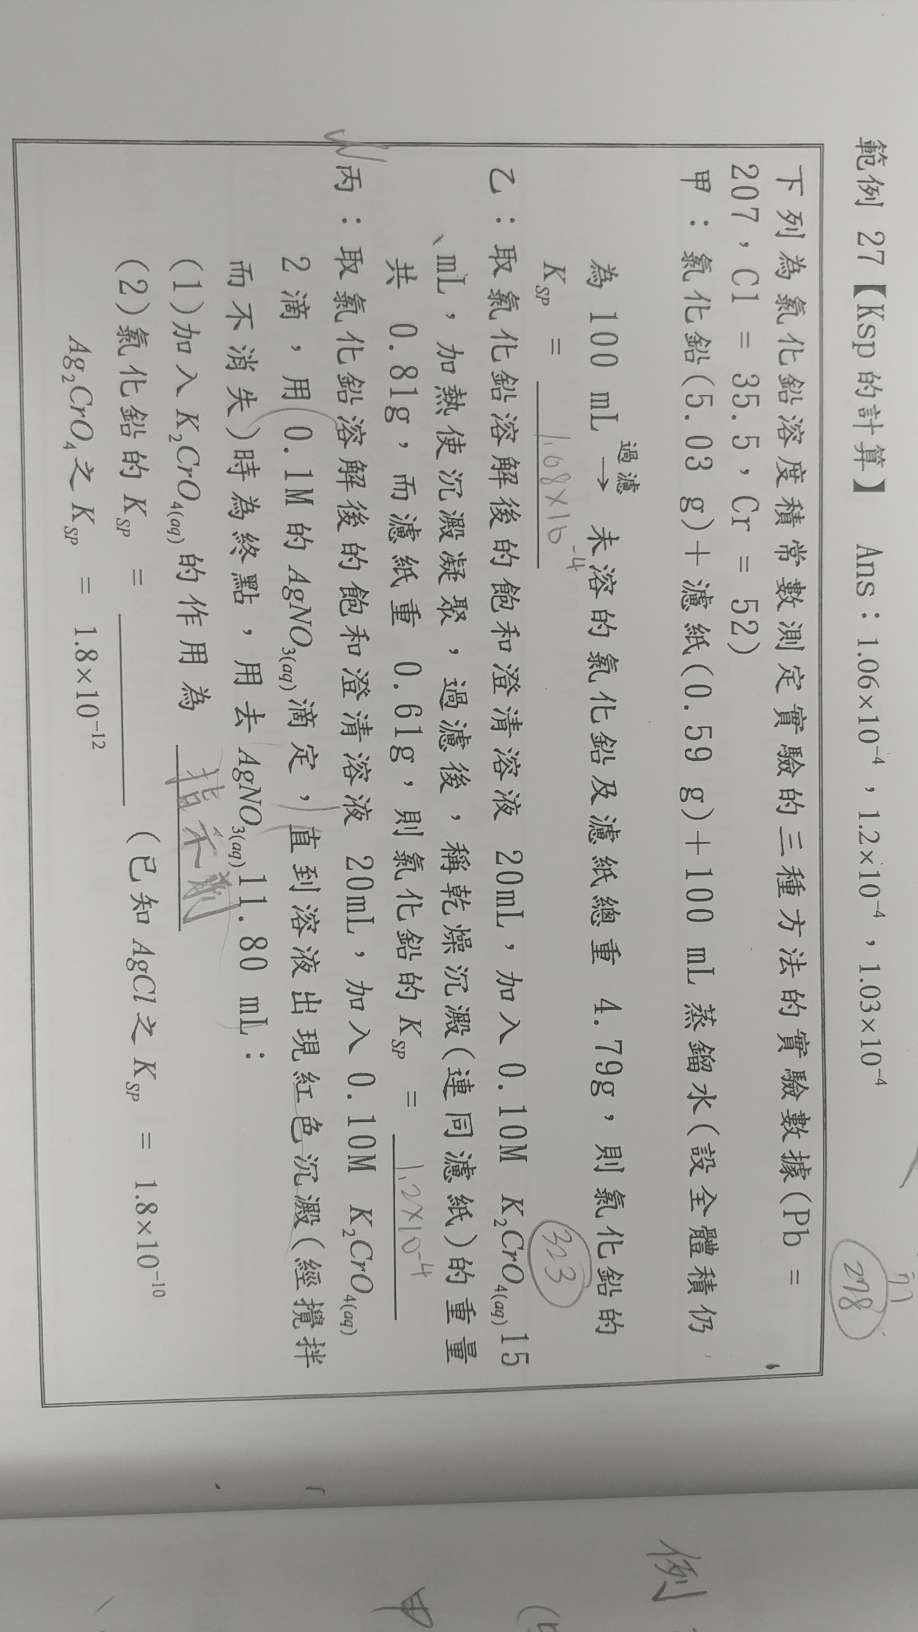 範例 27【Ksp的計算】 Ans：1.06×10⁻⁴，1.2×10⁻⁴，1.03×10⁻⁴
278
下列為氯化鉛溶度積常數測定實驗的三種方法的實驗數據(Pb =
207，Cl = 35.5，Cr = 52)
甲：氯化鉛(5.03 g)＋濾紙(0.59 g)＋100 mL 蒸餾水(設全體積仍
為 100 mL 過濾→ 未溶的氯化鉛及濾紙總重 4.79g，則氯化鉛的
K_SP = 1.08×10⁻⁴
323
乙：取氯化鉛溶解後的飽和澄清溶液 20mL，加入 0.10M K₂CrO₄(aq) 15
mL，加熱使沉澱凝聚，過濾後，稱乾燥沉澱(連同濾紙)的重量
共 0.81g，而濾紙重 0.61g，則氯化鉛的 K_SP = 1.2×10⁻⁴
丙：取氯化鉛溶解後的飽和澄清溶液 20mL，加入 0.10M K₂CrO₄(aq)
2 滴，用 0.1M 的 AgNO₃(aq) 滴定，直到溶液出現紅色沉澱(經攪拌
而不消失)時為終點，用去 AgNO₃(aq) 11.80 mL：
(1)加入 K₂CrO₄(aq) 的作用為 指示劑
(2)氯化鉛的 K_SP = ______ (已知 AgCl 之 K_SP = 1.8×10⁻¹⁰
Ag₂CrO₄ 之 K_SP = 1.8×10⁻¹²
例